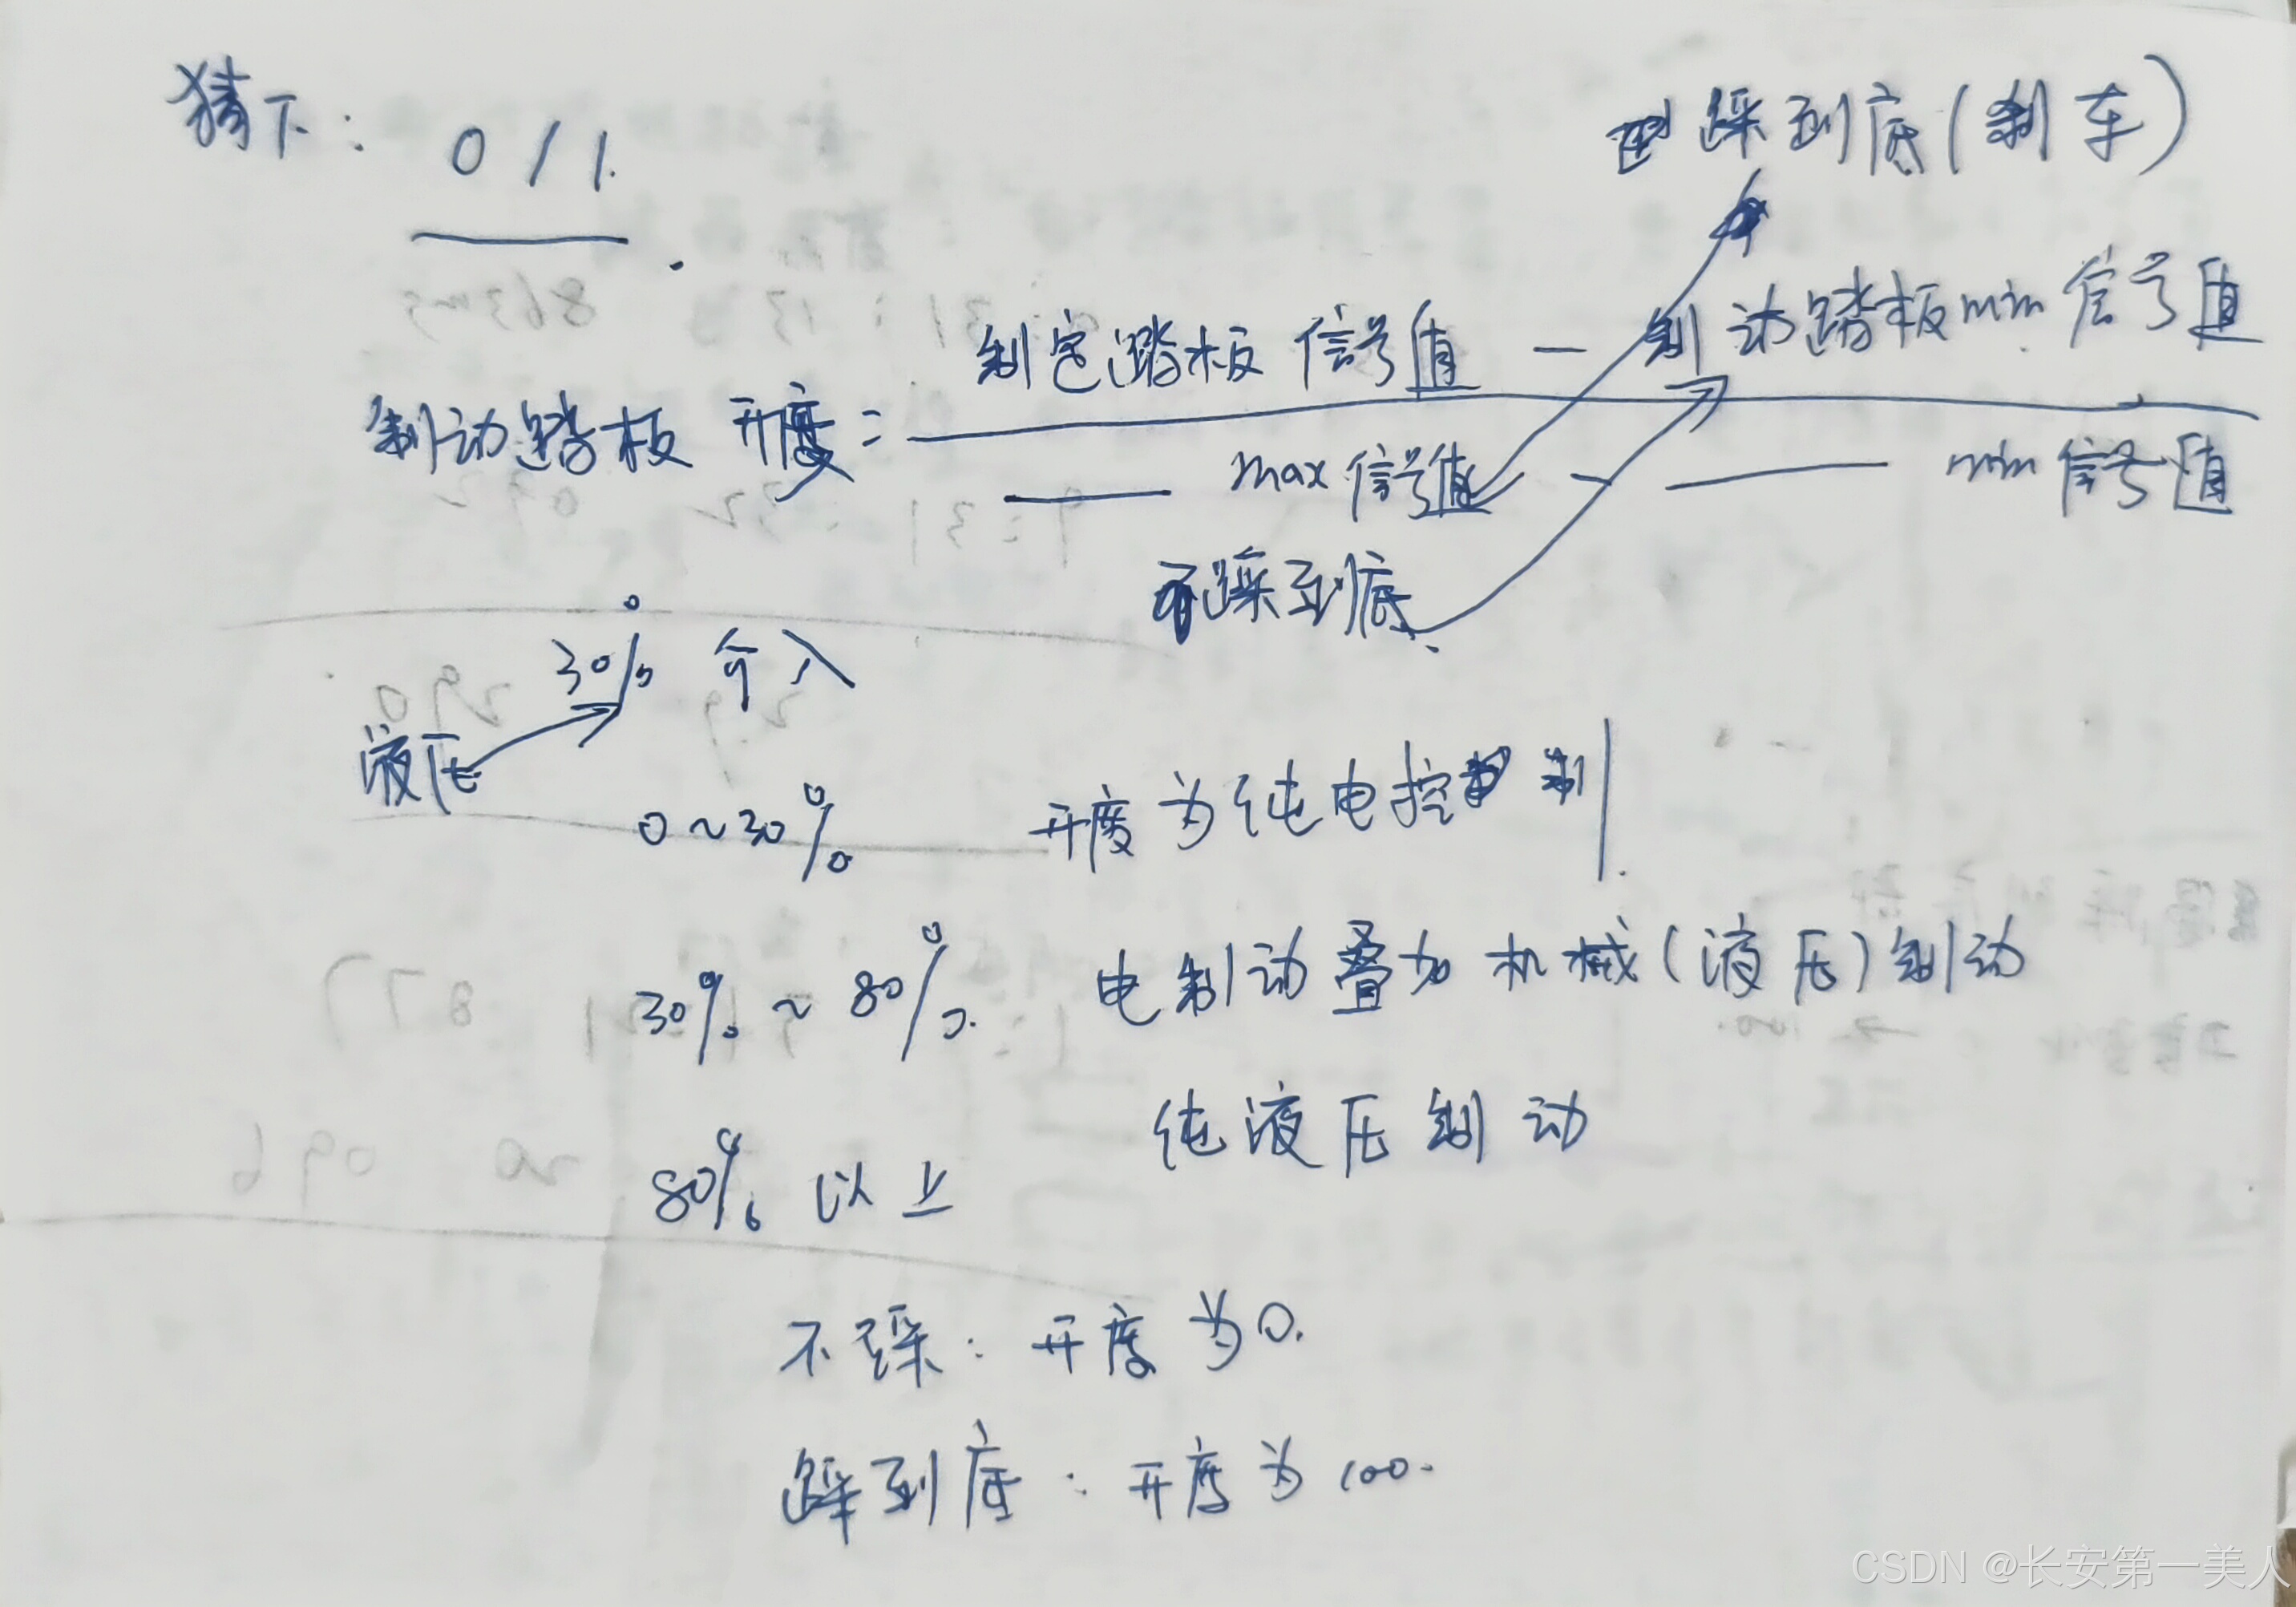 猜下: 0 / 1.
踩到底(刹车)
制定踏板信号值 — 制动踏板min信号值
制动踏板开度 =
—— max信号值 - —— min信号值
不踩到底.
30% 介入
液压
0~30% 开度为纯电控制
30% ~ 80%. 电制动叠加机械(液压)制动
80% 以上 纯液压制动
不踩: 开度为0.
踩到底: 开度为100.
CSDN @长安第一美人